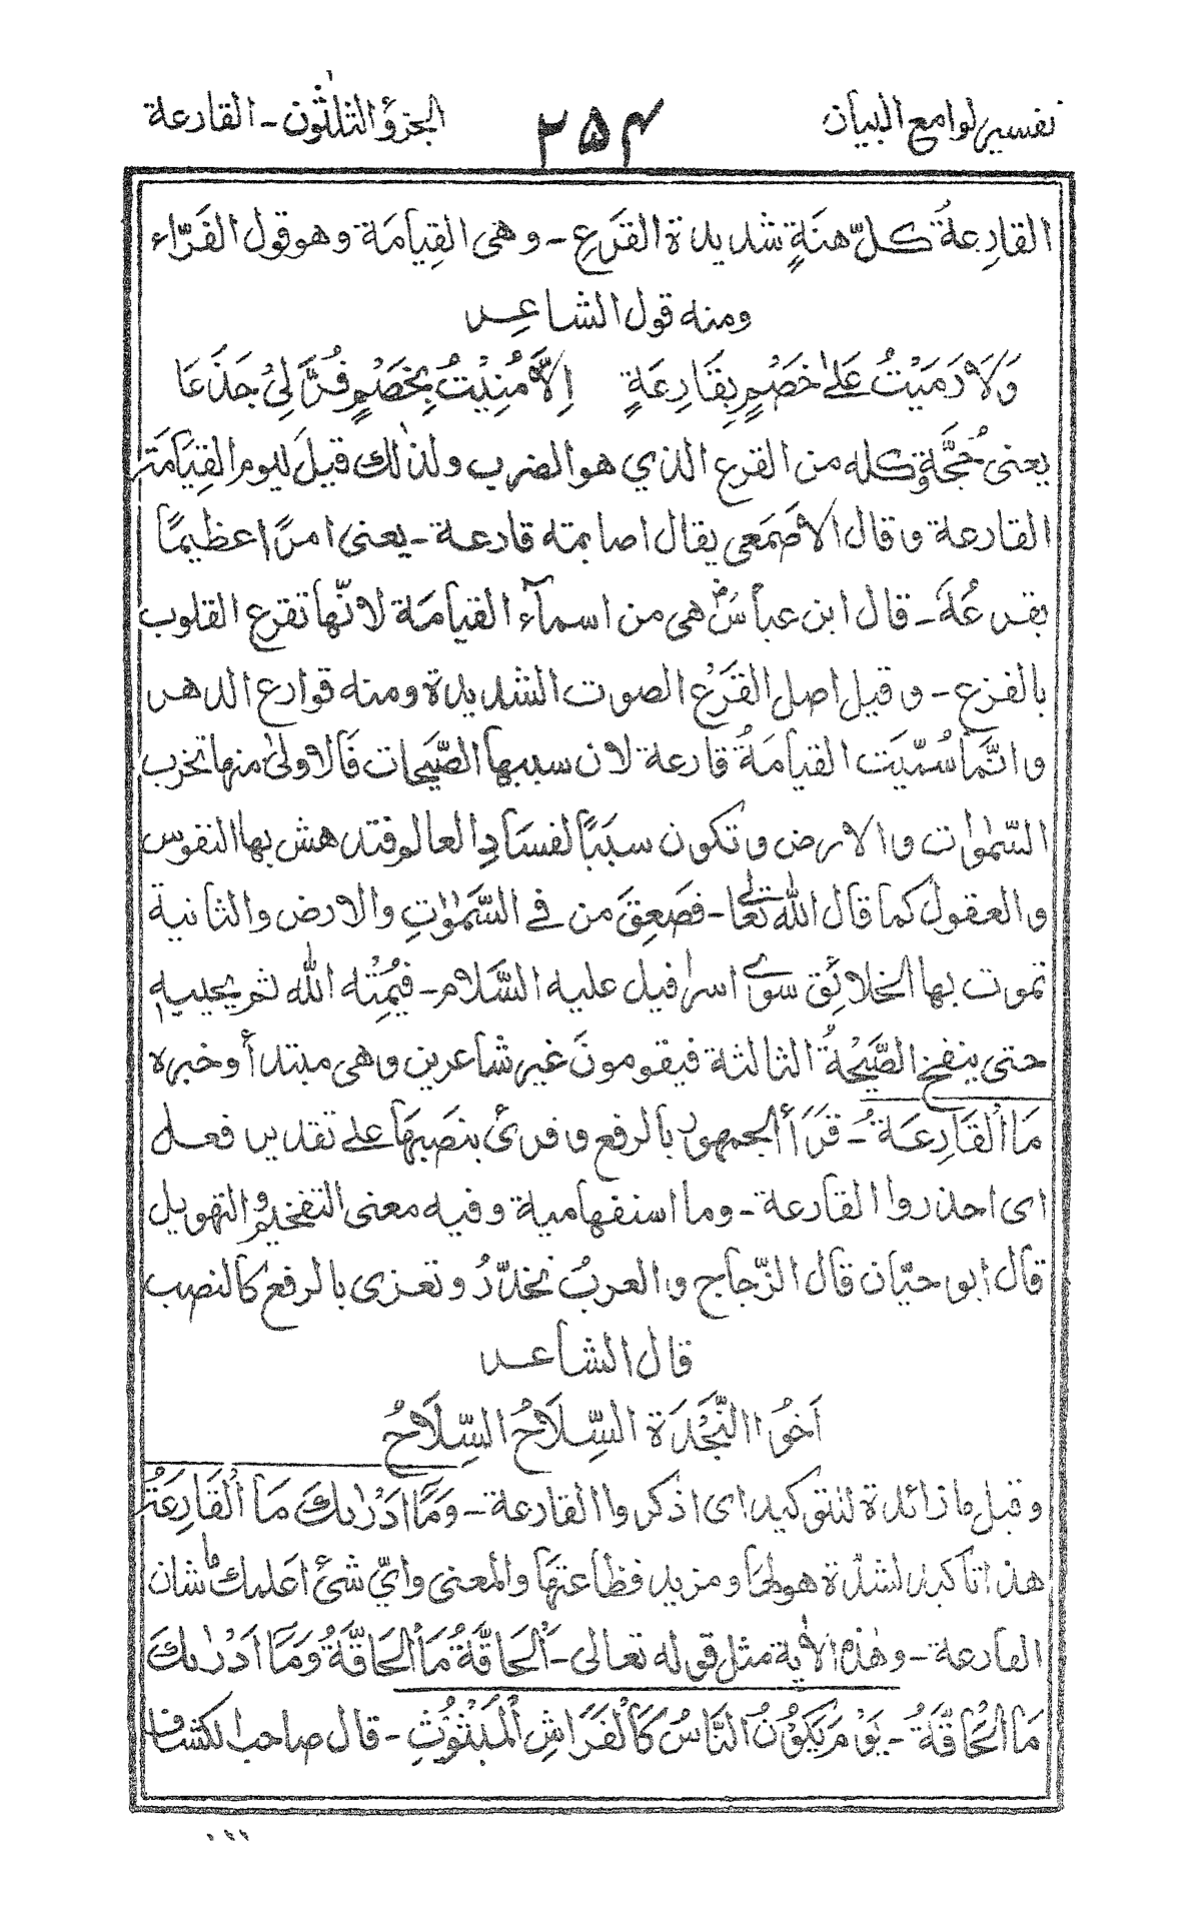 تفسير لوامع البيان ٢٥٤ الجزؤ الثلٰثون - القارعة
القارِعةُ كلّ هنَةٍ شديدة القَرَعِ - وهى القِيامَة وهو قول الفَرّاء
ومنه قول الشاعِر
وَلَا رَمَيْتُ عَلىٰ خَصْمٍ بِقَارِعَةٍ اِلَّا مُنِيْتُ بِخَصْمٍ فُرَّ لِيْ جَذَعَا
يعنى حُجَّة وكله من القرع الذي هو الضرب ولذٰلك قيل ليوم القِيَامَة
القارعة وقال الاصَمَعى يقال اصابته قارعة - يعنى امرًا عظيمًا
يقرعُهٗ - قال ابن عباسؓ هى من اسمآء القيامَة لانّها تقرع القلوب
بالفزع - وقيل اصل القَرَعْ الصوت الشديدة ومنه قوارع الدهر
وانّما سُمّيَت القيامَةُ قارعة لان سببها الصَّيحَات فَالاولىٰ منها تخرب
السّمٰوٰت والارض وتكون سبَبًا لفسَادِ العالم فتدهش بها النفوس
والعقول كما قال اللّٰه تعالىٰ - فصَعِقَ من في السَّمٰوٰتِ والارض والثانية
تموت بها الخلائق سوٰى اسرافيل عليه السَّلام - فيُمِتْه اللّٰه ثم يحييه
حتى ينفخ الصَّيحْةُ الثالثة فيقومونَ غير شاعرين وهى مبتدأ وخبره
مَا الْقَارِعَةُ - قَرَأَ الجمهور بالرفع وقرئ بنصَبهَا على تقدير فعل
اى احذروا القارعة - وما استفهامية وفيه معنى التفخيم والتهويل
قال ابو حيّان قال الزّجاج والعربُ تحذّرُ وتعزى بالرفع كالنصب
قال الشاعر
اَخُوا النَّجْدَة السِّلَاحُ السِّلَاحُ
وقيل ما زائدة للتوكيد اى اذكروا القارعة - وَمَا اَدْرٰىكَ مَا الْقَارِعَةُ
هذا تاكيد لشدّة هولهَا ومزيد فظاعتهَا والمعنى وايّ شئ اعلمك ما شان
القارعة - وهٰذه الاٰية مثل قوله تعالى - اَلْحَاقَّةُ مَا الْحَاقَّةُ وَمَا اَدْرٰىكَ
مَا الْحَاقَّةُ - يَوْمَ يَكُوْنُ النَّاسُ كَالْفَرَاشِ الْمَبْثُوْثِ - قال صاحب الكشاف